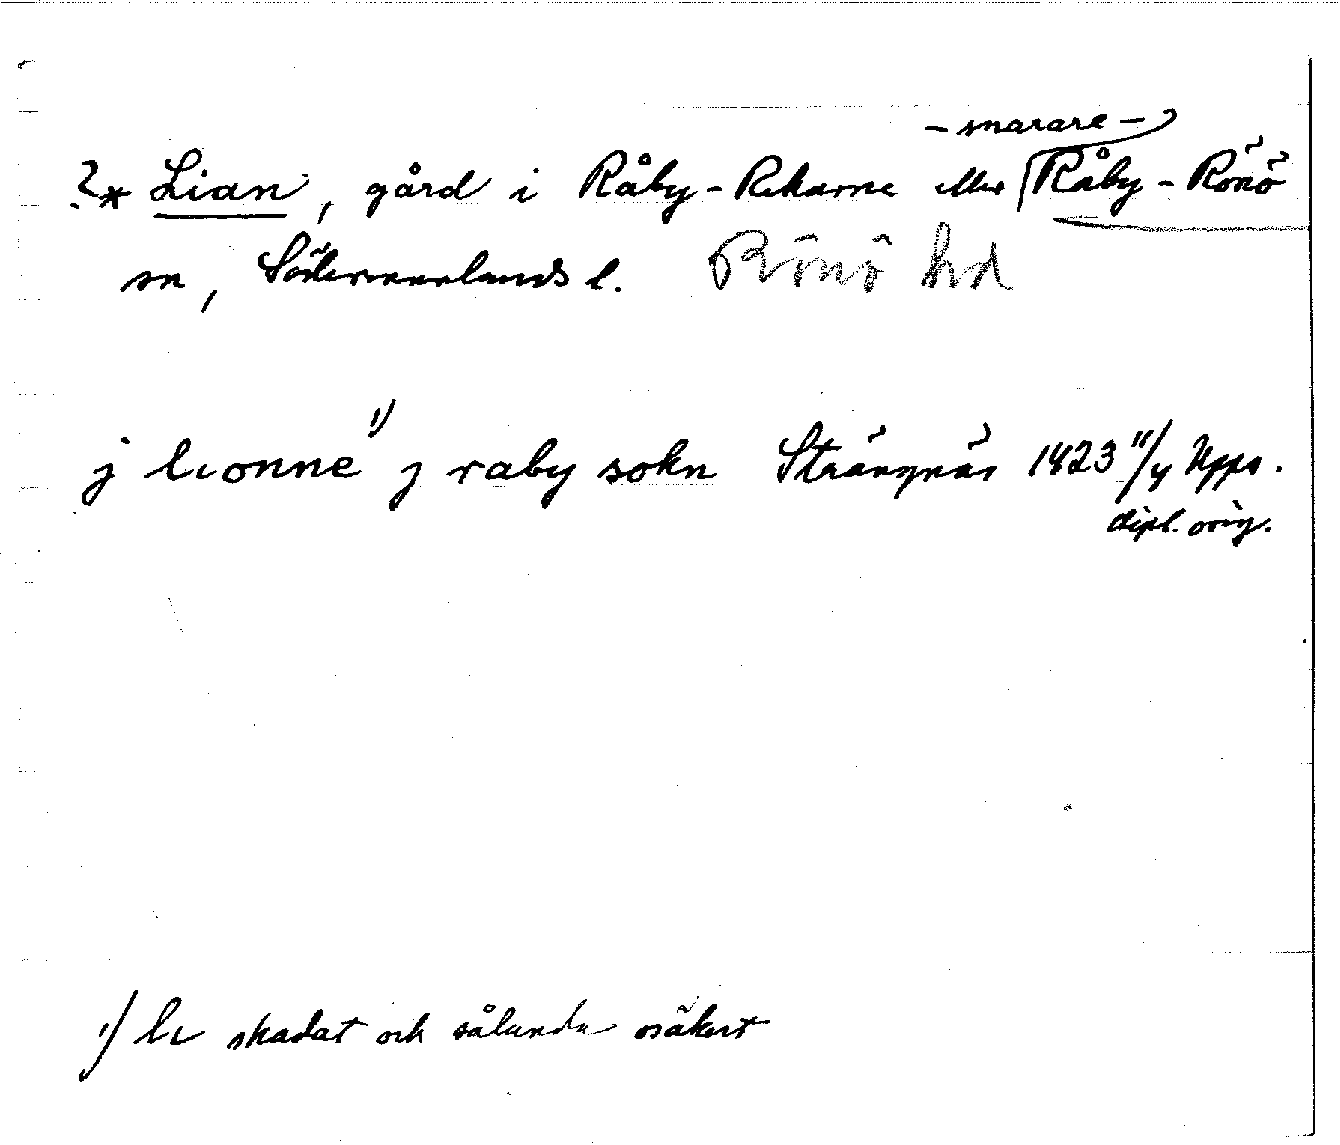 - snarare -
?* Lian, gård i Råby-Rekarne eller Råby-Rönö
sn, Södermanlands l. Rönö hd
j lıonne 1) j raby sokn Strängnäs 1423 11/4 Upps.
dipl. orig.
1) lı skadat och sålunda osäkert